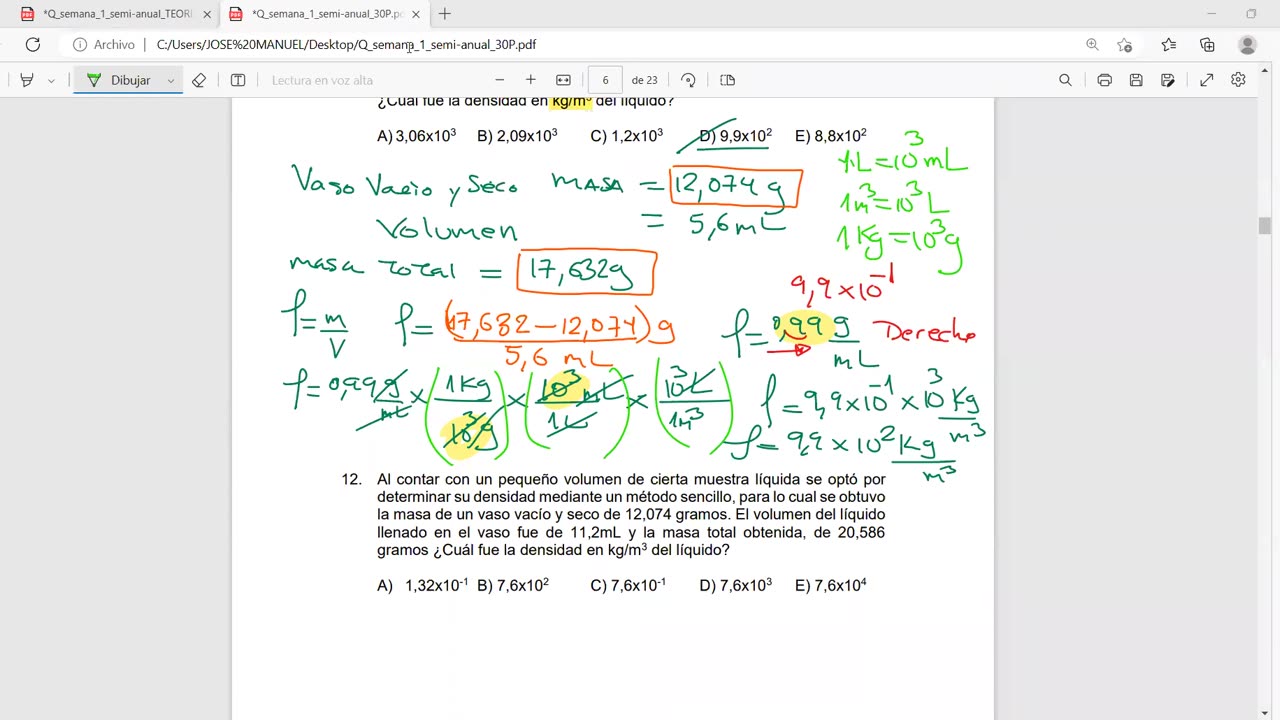 *Q_semana_1_semi-anual_TEORI
*Q_semana_1_semi-anual_30P.pd
Archivo
C:/Users/JOSE%20MANUEL/Desktop/Q_semana_1_semi-anual_30P.pdf
Dibujar
Lectura en voz alta
6
de 23
¿Cuál fue la densidad en kg/m³ del líquido?
A) 3,06x10³ B) 2,09x10³ C) 1,2x10³ D) 9,9x10² E) 8,8x10²
Vaso Vacio y Seco MASA = 12,074 g
Volumen = 5,6 mL
masa TOTAL = 17,632g
1L = 10³ mL
1m³ = 10³ L
1Kg = 10³g
9,9 x 10⁻¹
ρ = m/V
ρ = (17,632 – 12,074) g / 5,6 mL
ρ = 0,99 g/mL Derecha
ρ = 0,99 g/mL x (1Kg/10³g) x (10³ mL/1L) x (10³ L/1m³)
ρ = 9,9 x 10⁻¹ x 10³ Kg/m³
ρ = 9,9 x 10² Kg/m³
12. Al contar con un pequeño volumen de cierta muestra líquida se optó por
determinar su densidad mediante un método sencillo, para lo cual se obtuvo
la masa de un vaso vacío y seco de 12,074 gramos. El volumen del líquido
llenado en el vaso fue de 11,2mL y la masa total obtenida, de 20,586
gramos ¿Cuál fue la densidad en kg/m³ del líquido?
A) 1,32x10⁻¹ B) 7,6x10² C) 7,6x10⁻¹ D) 7,6x10³ E) 7,6x10⁴